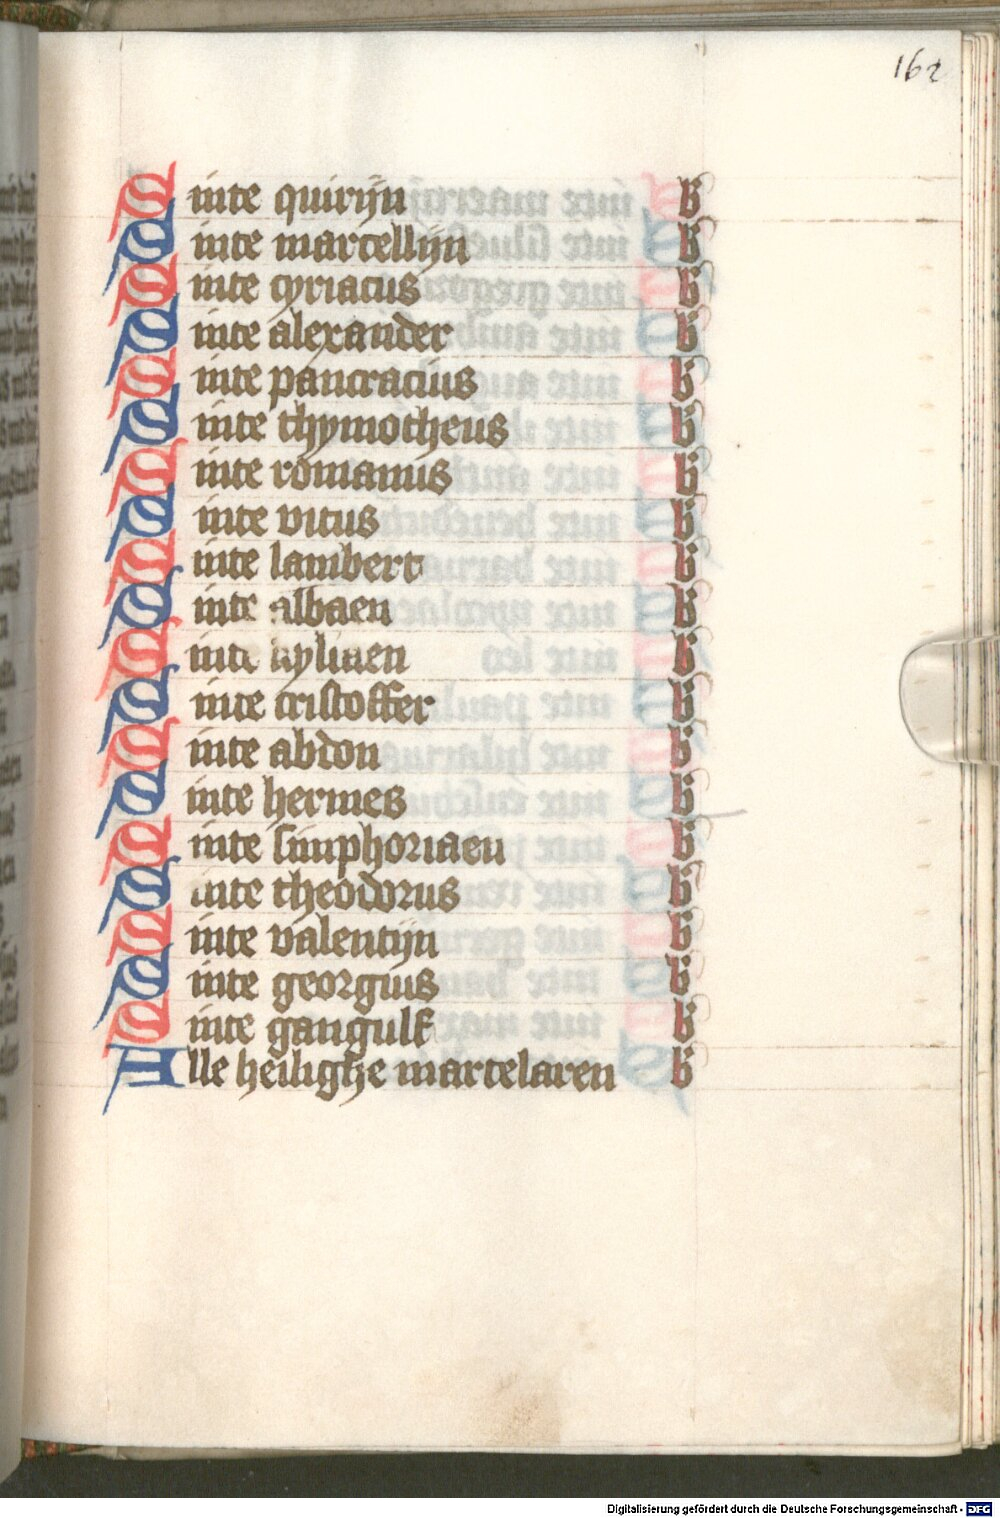 162
Sinte quirijn b
Sinte martellijn b
Sinte cyriacus b
Sinte alexander b
Sinte pancracius b
Sinte thymotheus b
Sinte romanus b
Sinte vitus b
Sinte lambert b
Sinte albaen b
Sinte kyliaen b
Sinte cristoffer b
Sinte abdon b
Sinte hermes b
Sinte simphoriaen b
Sinte theodorus b
Sinte valentijn b
Sinte georgius b
Sinte gangulf b
Alle heilighe martelaren b
Digitalisierung gefördert durch die Deutsche Forschungsgemeinschaft - DFG